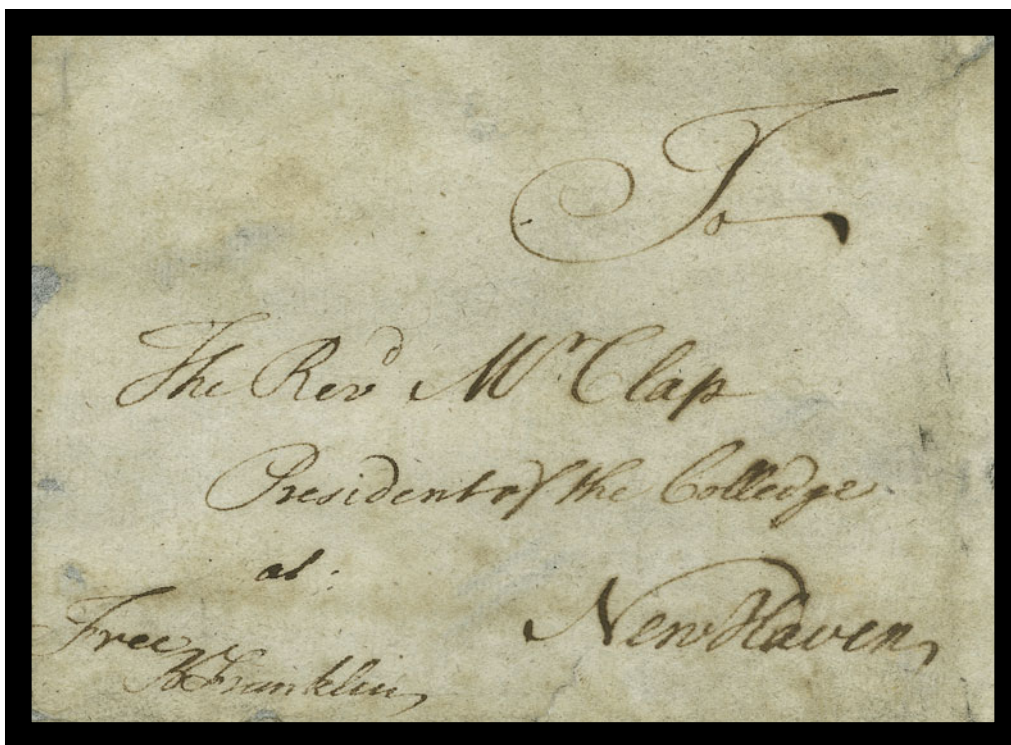 To
The Revd Mr Clap
President of the Colledge
at
New Haven,
Free
B Franklin,